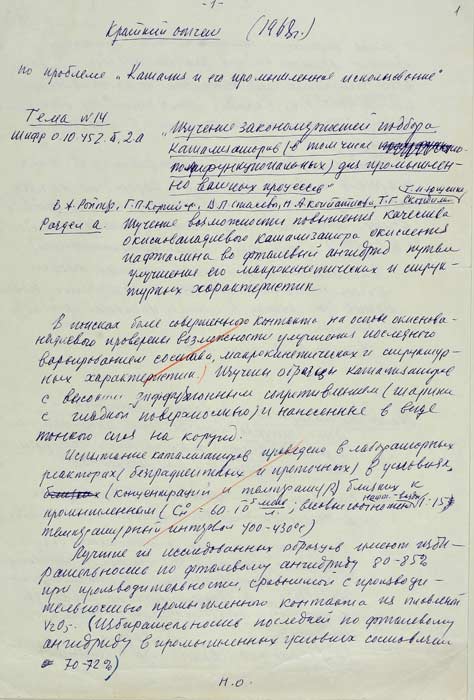 -1-
1
Краткий отчет (1968г.)
по проблеме „Катализ и его промышленное использование"
Тема №14
Шифр 0.10.452.
„Изучение закономерностей подбора
катализаторов (в том числе
полифункциональных) для промышлен-
но важных процессов"
В.А. Ройтер, Г.П. Корнейчук,
Раздел а. Изучение возможности повышения качества
окиснованадиевого катализатора окисления
нафталина во фталевый ангидрид путем
улучшения его макрокинетических и струк-
турных характеристик
В поисках более совершенного контакта на основе окиснова-
надиевого проверены возможности улучшения последнего
варьированием состава, макрокинетических и структур-
ных характеристик. Изучены образцы катализаторов
с высоким диффузионным сопротивлением (шарики
с гладкой поверхностью) и нанесенные в виде
тонкого слоя на корунд.
Испытание катализаторов проведено в лабораторных
реакторах (безградиентных и проточных) в условиях
(концентраций и температур) близких к
промышленным
температурный интервал 400-430°С)
Лучшие из исследованных образцов имеют изби-
рательность по фталевому ангидриду 80-85%
при производительности, сравнимой с производи-
тельностью промышленного контакта из плавленой
V₂O₅. (Избирательность последней по фталевому
ангидриду в промышленных условиях составляет
70-72%)
н.о.